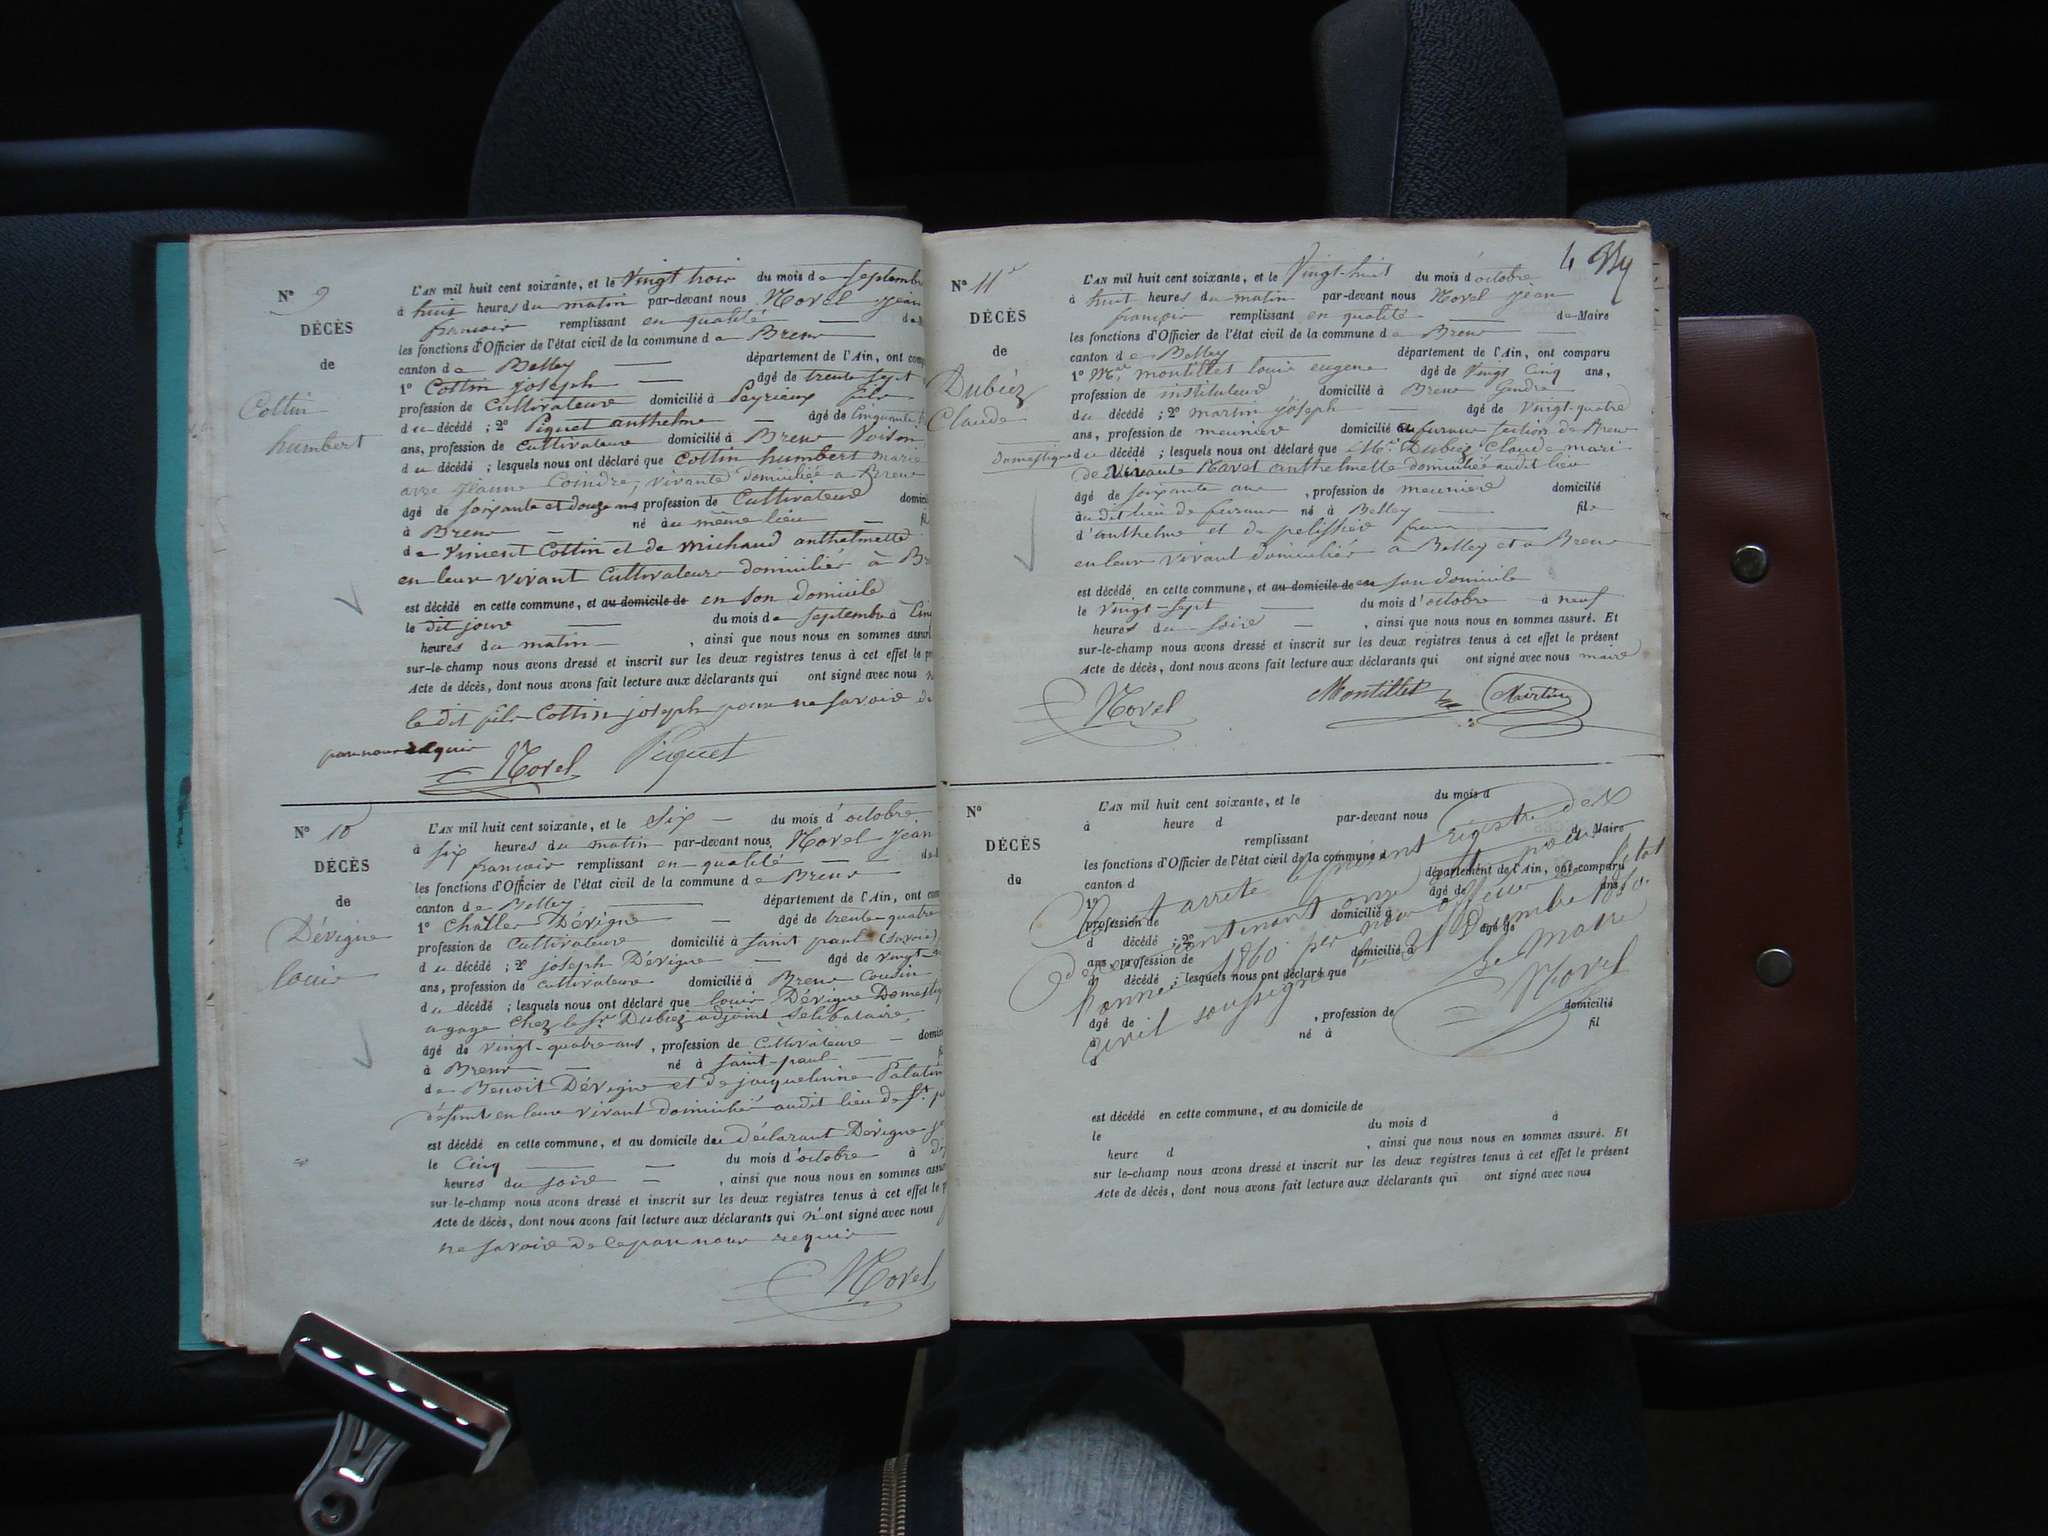 N° 9
DÉCÈS
de
Cottin
humbert
L'AN mil huit cent soixante, et le Vingt trois du mois de septembre
à huit heures du matin par-devant nous Novel jean
francois remplissant en qualité de
les fonctions d'Officier de l'état civil de la commune de Brens
canton de Belley département de l'Ain, ont comp
1° Cottin joseph âgé de trente sept
profession de Cultivateur domicilié à Peyrieux fils
du décédé ; 2° Piquet anthelme âgé de Cinquante
ans, profession de Cultivateur domicilié à Brens Voisin
du décédé ; lesquels nous ont déclaré que Cottin humbert marié
avec jeanne Coindre, vivante domiciliée a Brens
âgé de soixante et douze ans profession de Cultivateur domici
à Brens né au même lieu fil
de Vincent Cottin et de Michaud anthelmette
en leur vivant Cultivateurs domiciliés à Br
est décédé en cette commune, et au domicile de en son domicile
le dit jour du mois de septembre à Cinq
heures du matin , ainsi que nous nous en sommes assuré
sur-le-champ nous avons dressé et inscrit sur les deux registres tenus à cet effet le pr
Acte de décès, dont nous avons fait lecture aux déclarants qui ont signé avec nous
le dit fils Cottin joseph pour ne savoir de
par nous requis
Novel Piquet
N° 10
DÉCÈS
de
Dévigne
louis
L'AN mil huit cent soixante, et le six du mois d'octobre
à six heures du matin par-devant nous Novel jean
francois remplissant en qualité de
les fonctions d'Officier de l'état civil de la commune de Brens
canton de Belley département de l'Ain, ont com
1° Challes Dévigne âgé de trente-quatre
profession de Cultivateur domicilié à saint paul (savoie)
du décédé ; 2° joseph Dévigne âgé de vingt
ans, profession de cultivateur domicilié à Brens Cousin
du décédé ; lesquels nous ont déclaré que louis Dévigne Domestiq
a gage chez le Sr Dubiez adjoint Selibataire
âgé de vingt-quatre ans , profession de Cultivateur domici
à Brens né à saint-paul
de Benoit Dévigne et de jacqueline Palatin
défunt en leur vivant domicilié audit lieu de St p
est décédé en cette commune, et au domicile du déclarant Dévigne
le Cinq du mois d'octobre à
heures du soir , ainsi que nous nous en sommes assu
sur-le-champ nous avons dressé et inscrit sur les deux registres tenus à cet effet le p
Acte de décès, dont nous avons fait lecture aux déclarants qui n'ont signé avec nous
ne savoir de ce par nous requis
Novel
4
N° 11
DÉCÈS
de
Dubiez
Claude
Domestique
L'AN mil huit cent soixante, et le Vingt-huit du mois d'octobre
à huit heures du matin par-devant nous Novel jean
françois remplissant en qualité de Maire
les fonctions d'Officier de l'état civil de la commune de Brens
canton de Belley département de l'Ain, ont comparu
1° Mr montillet louis eugene âgé de Vingt Cinq ans,
profession de instituteur domicilié à Brens Gendre
du décédé ; 2° martin joseph âgé de vingt-quatre
ans, profession de meunier domicilié a furans section de Brens
du décédé ; lesquels nous ont déclaré que Mr Dubiez Claude mari
de Vivante Navet anthelmette domiciliée audit lieu
âgé de soixante ans , profession de meunier domicilié
audit lieu de furans né à Belley fils
d'anthelme et de pelissier
en leur vivant domiciliés à Belley et a Brens
est décédé en cette commune, et au domicile de en son domicile
le vingt-sept du mois d'octobre à neuf
heures du soir , ainsi que nous nous en sommes assuré. Et
sur-le-champ nous avons dressé et inscrit sur les deux registres tenus à cet effet le présent
Acte de décès, dont nous avons fait lecture aux déclarants qui ont signé avec nous maire
Novel Montillet Martin
N°
DÉCÈS
de
L'AN mil huit cent soixante, et le du mois d
à heure d par-devant nous
remplissant d Maire
les fonctions d'Officier de l'état civil de la commune d
canton d département de l'Ain, ont comparu
1° âgé de ans
profession de domicilié à
d décédé ; 2° âgé de
ans, profession de domicilié à
d décédé ; lesquels nous ont déclaré que
âgé de , profession de domicilié
à né à fil
d
Clos et arrêté le présent registre des
décès contenant onze actes pour
l'année 1860 par nous officier de l'état
civil soussigné le 31 Décembre 1860.
Le Maire
Novel
est décédé en cette commune, et au domicile de
le du mois d à
heure d , ainsi que nous nous en sommes assuré. Et
sur le-champ nous avons dressé et inscrit sur les deux registres tenus à cet effet le présent
Acte de décès, dont nous avons fait lecture aux déclarants qui ont signé avec nous